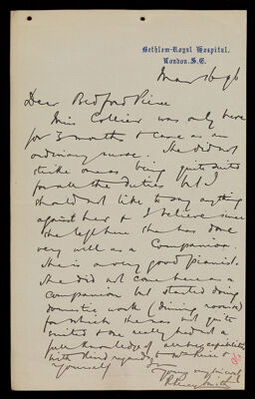 Bethlem-Royal Hospital,
London. S.E.
Dear Bedford Pierce
Miss Collier was only here
for 3 months & came as an
ordinary nurse. She did not
strike one as being quite suited
for all the duties but I
should not like to say anything
against her & I believe since
she left here she has done
very well as a Companion.
She is a very good pianist.
She did not come here as a
companion but started doing
domestic work (dining rooms)
for which she was not quite
suited & we really had not a
full knowledge of all her capabilities
With kind regards to
Yourself
Yours very sincerely